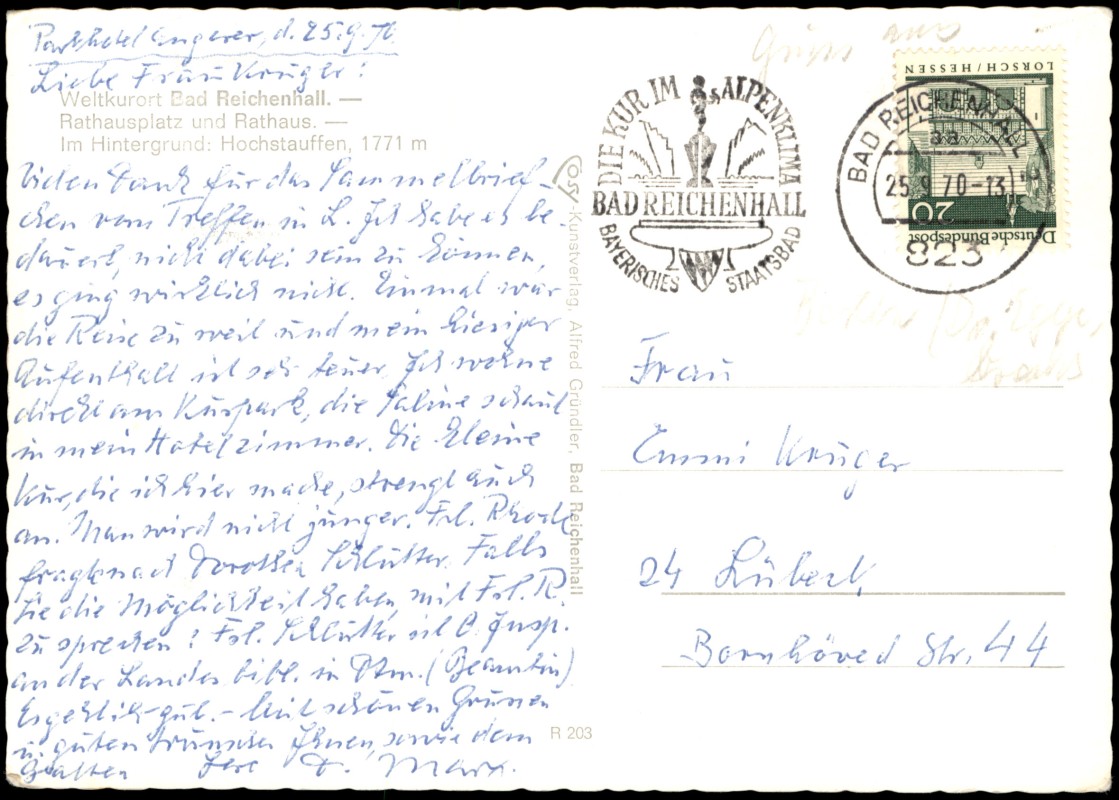 Parkhotel Luegerer, d. 25.9.70
Liebe Frau Krüger!
Weltkurort Bad Reichenhall. —
Rathausplatz und Rathaus. —
Im Hintergrund: Hochstauffen, 1771 m
Vielen Dank für das Sammelbrief-
chen vom Treffen in L. Ich habe es be-
dauert, nicht dabei sein zu können,
es ging wirklich nicht. Einmal war
die Reise zu weit und mein hiesiger
Aufenthalt ist sehr teuer. Ich wohne
direkt am Kurpark, die Saline schaut
in mein Hotelzimmer. Die kleine
Kur, die ich hier mache, strengt auch
an. Man wird nicht jünger. Frl. Rhode
fragte nach Dorothea Schlütter. Falls
Sie die Möglichkeit haben, mit Frl. R.
zu sprechen? Frl. Schlütter ist O. Insp.
an der Landesbibl. in Dtm. (Beamtin)
Es geht ihr gut. – Mit schönen Grüssen
u. guten Wünschen Ihnen, sowie dem
Gatten Ihre D. Marx.
Cosy-Kunstverlag, Alfred Gründler, Bad Reichenhall
R 203
Gruss aus
DIE KUR IM ALPENKLIMA
BAD REICHENHALL
BAYERISCHES STAATSBAD
BAD REICHENHALL
25.9.70-13
823
LORSCH/HESSEN
20
Deutsche Bundespost
Frau
Emmi Krüger
24 Lübeck,
Bornhöved Str. 44